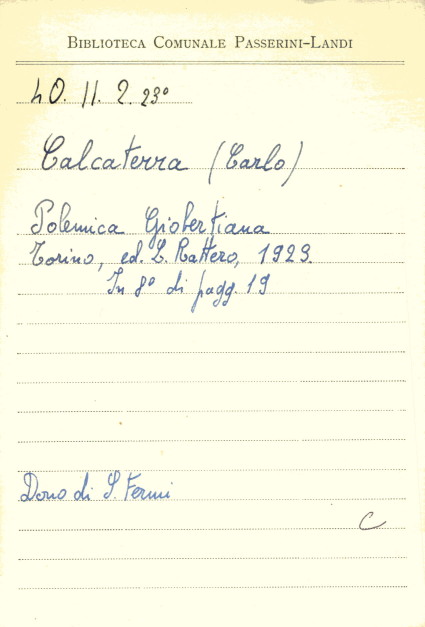 BIBLIOTECA COMUNALE PASSERINI-LANDI
40. 11. 2. 23°
Calcaterra (Carlo)
Polemica Giobertiana
Torino, ed. L. Rattero, 1923.
In 8° di pagg. 19
Dono di S. Fermi
C